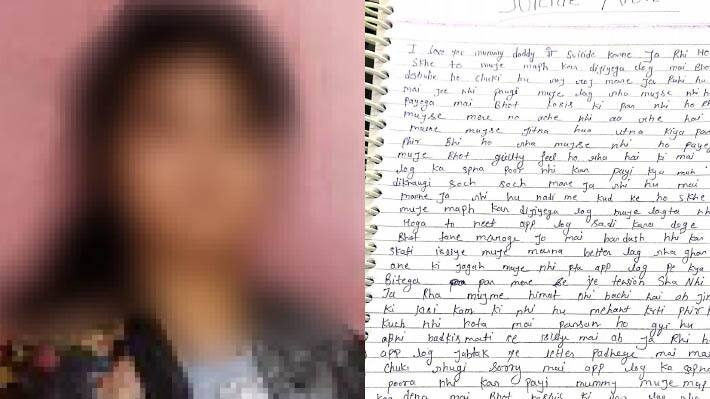 Suicide
I love you mummy daddy suicide karne ja Rhi
skhe to muje maph kar dijiyega log mai Bho
ho chuki hu mai marne ja Rahi hu
mai jee nhi paugi muje lag rha mujse nhi h
payega mai Bhot kosis ki par nhi ho
mujse mere no ache nhi aa rhe hai
mujse jitna hua utna kiya par
phir Bhi ho rha mujse nhi ho paye
muje Bhot guilty feel ho rha hai ki mai
log ka spna poor nhi kar payi kya muh
dikhaugi soch soch marne ja rhi hu mai
marne ja rhi hu nadi me kud ke ho skhe
muje maph kar dijiyega log muje lagta nh
Hoga to neet app log sadi kara doge
Bhot tane marege jo mai bardash nhi kar
skati isliye muje marna better lag rha ghar
ane ki jagah muje nhi pta app log pe kya
Bitega par mere se ye tension sha nhi
Ja Rha mujme himat nhi bachi hai ab
ki kam ki nhi hu mehant krti phir
kuch nhi kota mai parsan ho gyi hu
apni badkismati se isliye mai ab ja Rhi h
app log jabtak ye letter padhege mai mar
chuki rhugi sorry mai app log ka
poora nhi kar payi mummy muje maf
kar dena mai Bhot